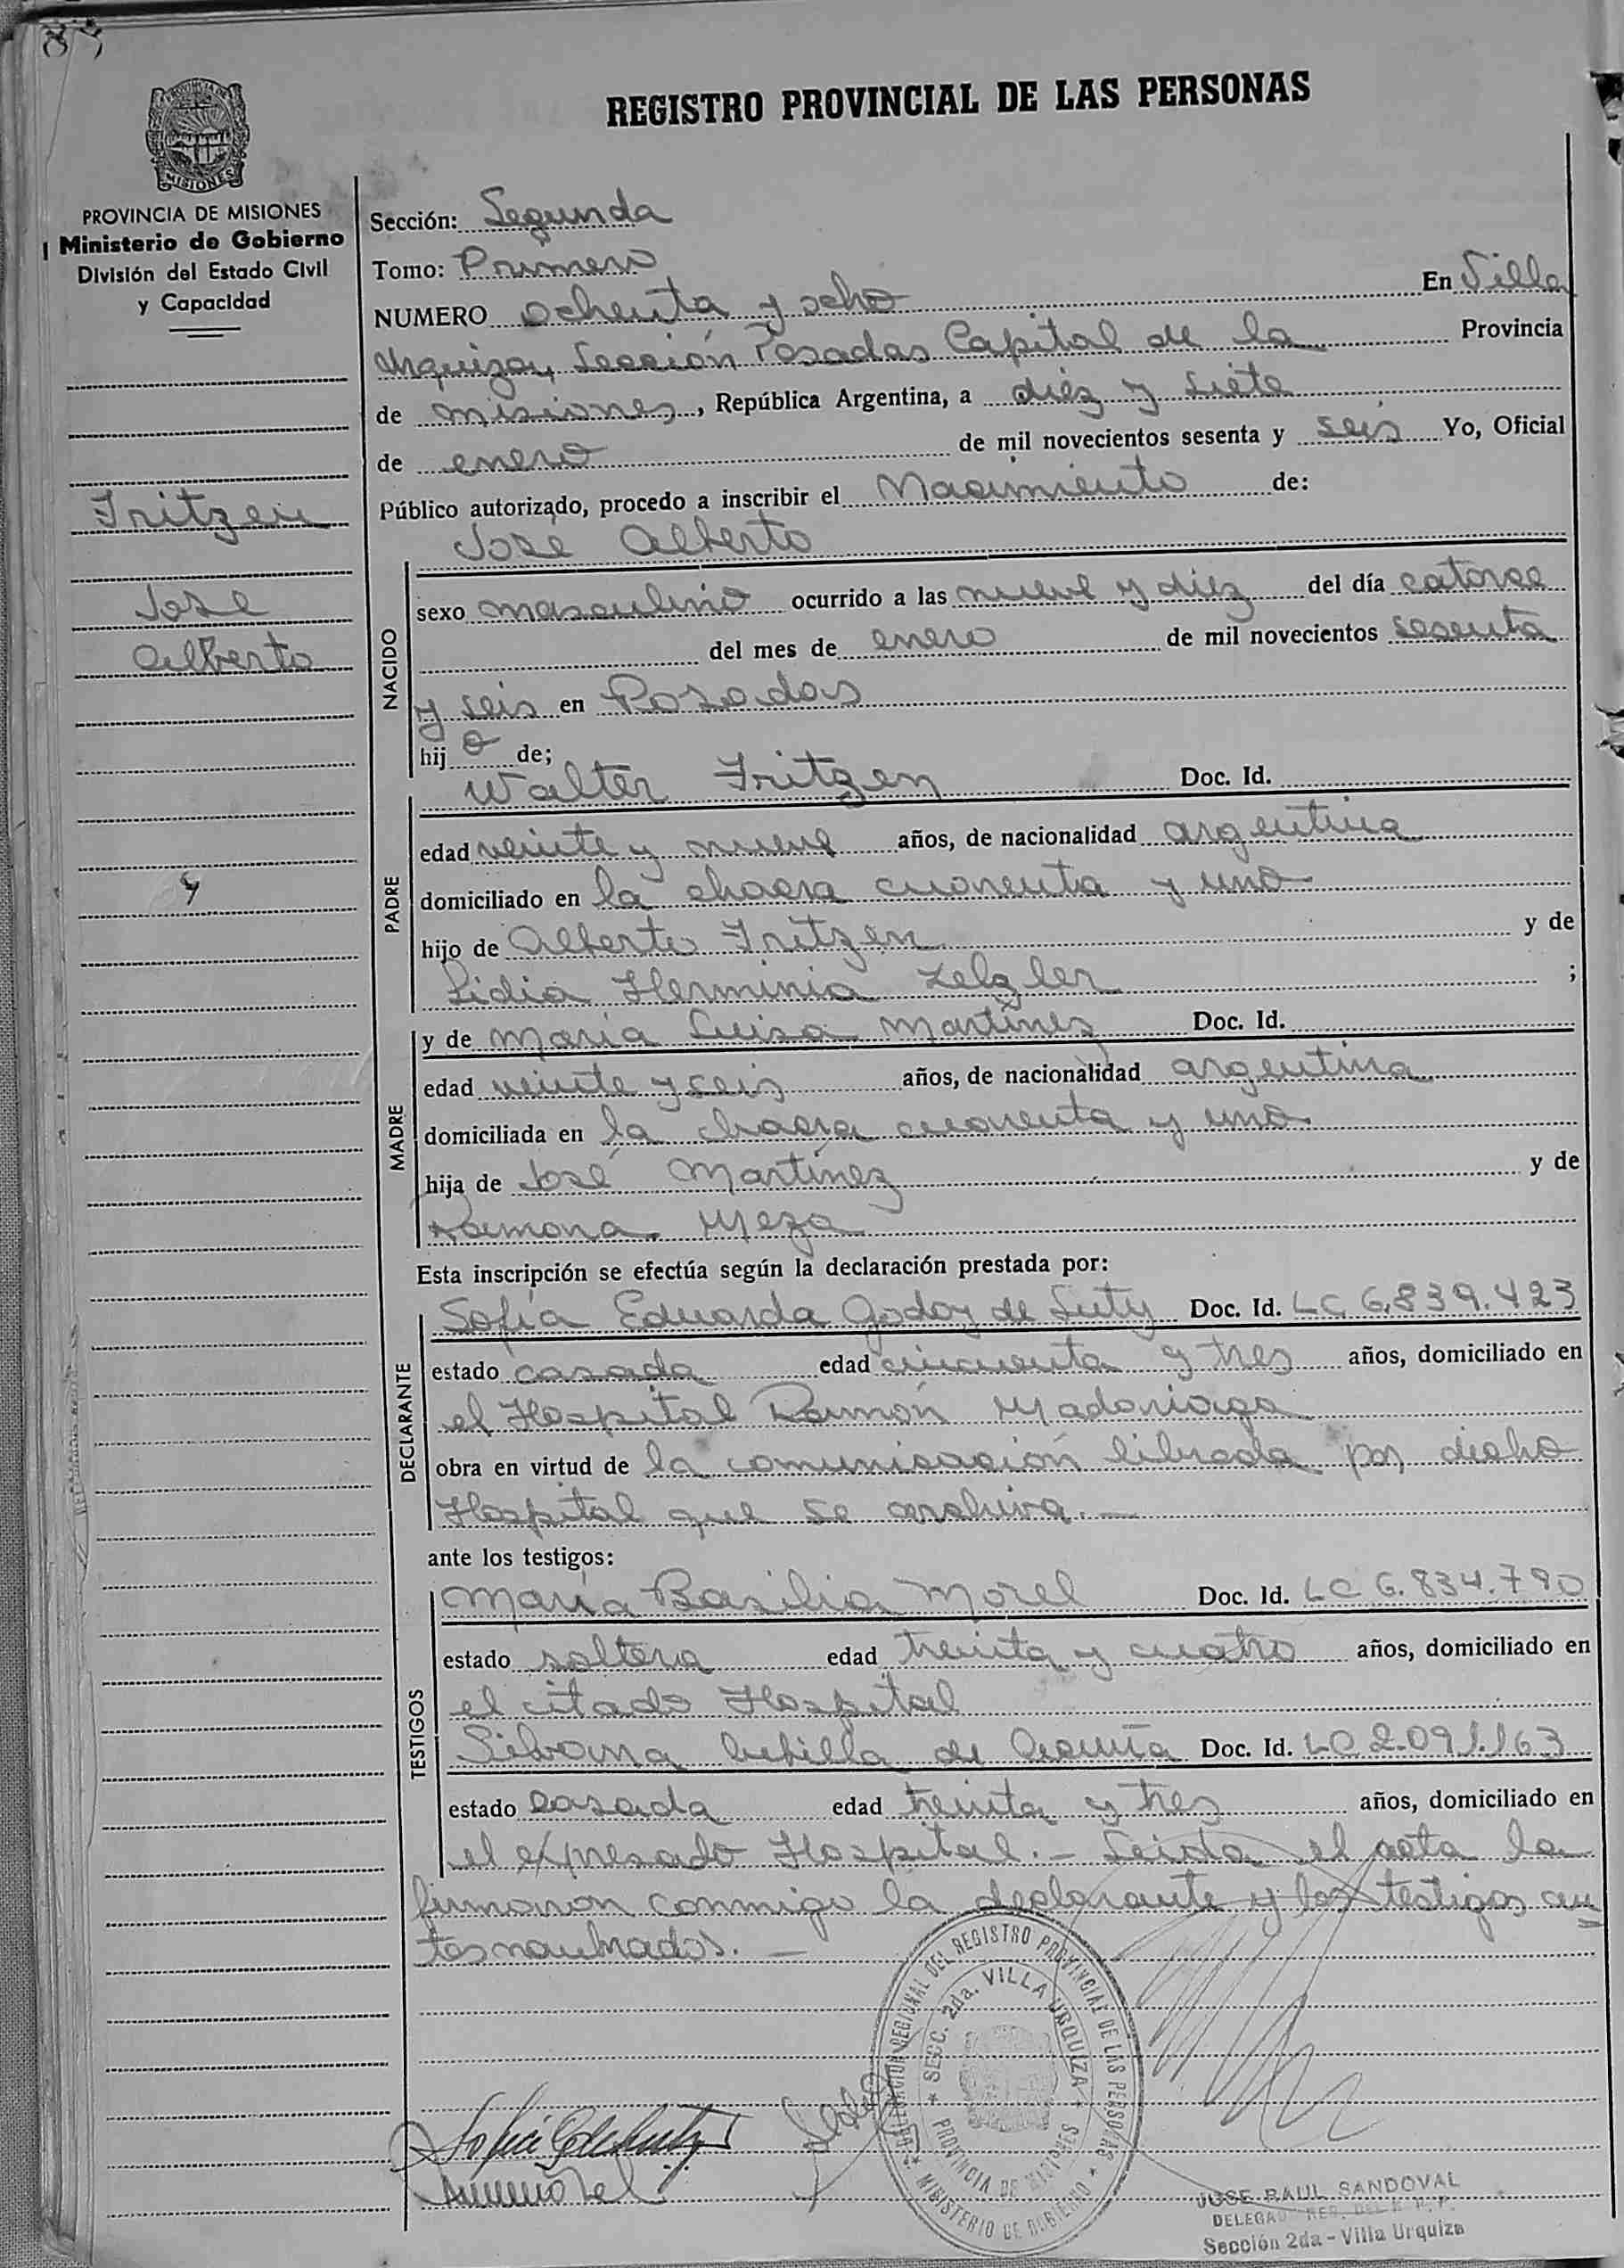 REGISTRO PROVINCIAL DE LAS PERSONAS
MISIONES
PROVINCIA DE MISIONES
Ministerio de Gobierno
División del Estado Civil
y Capacidad
Fritzen
José
Alberto
Sección: Segunda
Tomo: Primero
NUMERO ochenta y ocho En Villa
Urquiza, Sección Posadas Capital de la Provincia
de misiones, República Argentina, a diez y siete
de enero de mil novecientos sesenta y seis Yo, Oficial
Público autorizado, procedo a inscribir el Nacimiento de:
José Alberto
NACIDO
sexo masculino ocurrido a las nueve y diez del día catorce
del mes de enero de mil novecientos sesenta
y seis en Posadas
hijo de;
Walter Fritzen Doc. Id.
PADRE
edad veinte y nueve años, de nacionalidad argentina
domiciliado en la chacra cuarenta y uno
hijo de Alberto Fritzen y de
Lidia Herminia Zelgler ;
MADRE
y de María Luisa Martínez Doc. Id.
edad veinte y seis años, de nacionalidad argentina
domiciliada en la chacra cuarenta y uno
hija de José Martínez y de
Ramona Meza
Esta inscripción se efectúa según la declaración prestada por:
DECLARANTE
Sofía Eduarda Godoy de Luty Doc. Id. LC 6.839.423
estado casada edad cincuenta y tres años, domiciliado en
el Hospital Ramón Madariaga
obra en virtud de la comunicación librada por dicho
Hospital que se archiva.—
ante los testigos:
TESTIGOS
María Basilia Morel Doc. Id. LC 6.834.790
estado soltera edad treinta y cuatro años, domiciliado en
el citado Hospital
Silvana de Doc. Id. LC 2.091.163
estado casada edad treinta y tres años, domiciliado en
el expresado Hospital.— Leida el acta la
firmaron conmigo la declarante y los testigos an
tesnombrados.—
DELEGACION REGIONAL DEL REGISTRO PROVINCIAL DE LAS PERSONAS
SECC. 2da. VILLA URQUIZA
PROVINCIA DE MISIONES
MINISTERIO DE GOBIERNO
JOSE RAUL SANDOVAL
DELEGADO REG. DEL R. P. P.
Sección 2da - Villa Urquiza